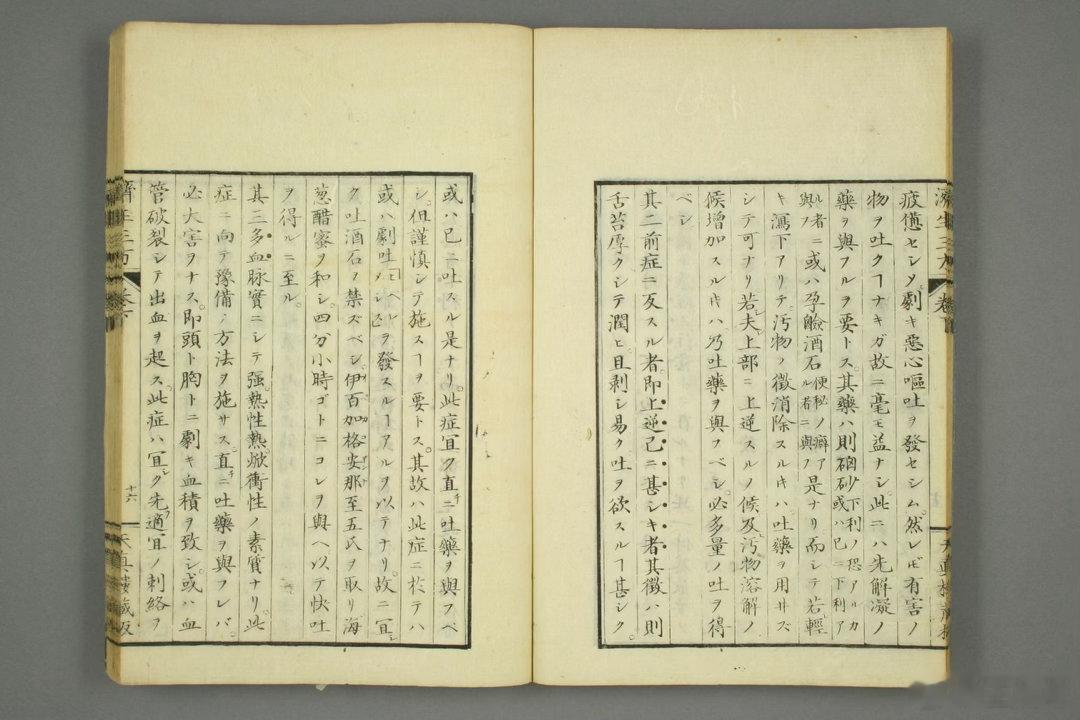 疲憊セシメ劇キ悪心嘔吐ヲ發セシム。然レ𪜈有害ノ
物ヲ吐クヿナキガ故ニ毫モ益ナシ。此ニハ先解凝ノ
藥ヲ與フルヲ要トス。其藥ハ則磠砂下利ノ恐アルカ或ハ已ニ下利ア
ル者ニ與フ或ハ孕鹼酒石便秘ノ癖アル者ニ與フ是ナリ而シテ若輕
キ瀉下アリテ汚物ノ徴消除スルキハ吐藥ヲ用ヰズ
シテ可ナリ若夫上部ニ上逆スルノ候及汚物溶解ノ
候増加スルキハ乃吐藥ヲ與フベシ。必多量ノ吐ヲ得
ベシ
其二前症ニ反スル者。即上逆已ニ甚シキ者其徴ハ則
舌苔厚クシテ潤ヒ且剥シ易ク吐ヲ欲スルヿ甚シク。
或ハ已ニ吐スル是ナリ。此症宜ク直ニ吐藥ヲ與フベ
シ。但謹慎シテ施スヿヲ要トス。其故ハ此症ニ於テハ
或ハ劇吐ヲ發スルヿアルヲ以テナリ。故ニ宜
ク吐酒石ヲ禁ズベシ伊百加格安那至五氏ヲ取リ海
葱醋蜜ヲ和シ。四分小時ゴトニコレヲ與ヘ以テ快吐
ヲ得ルニ至ル。
其三多血脉實ニシテ强熱性熱焮衝性ノ素質ナリ。此
症ニ向テ豫備ノ方法ヲ施サス。直ニ吐藥ヲ與フレバ。
必大害ヲナス。即頭ト胸トニ劇キ血積ヲ致シ。或ハ血
管破裂シテ出血ヲ起ス。此症ハ宜ク先適宜ノ刺絡ヲ
濟生三方
卷下
十六
天真樓藏版